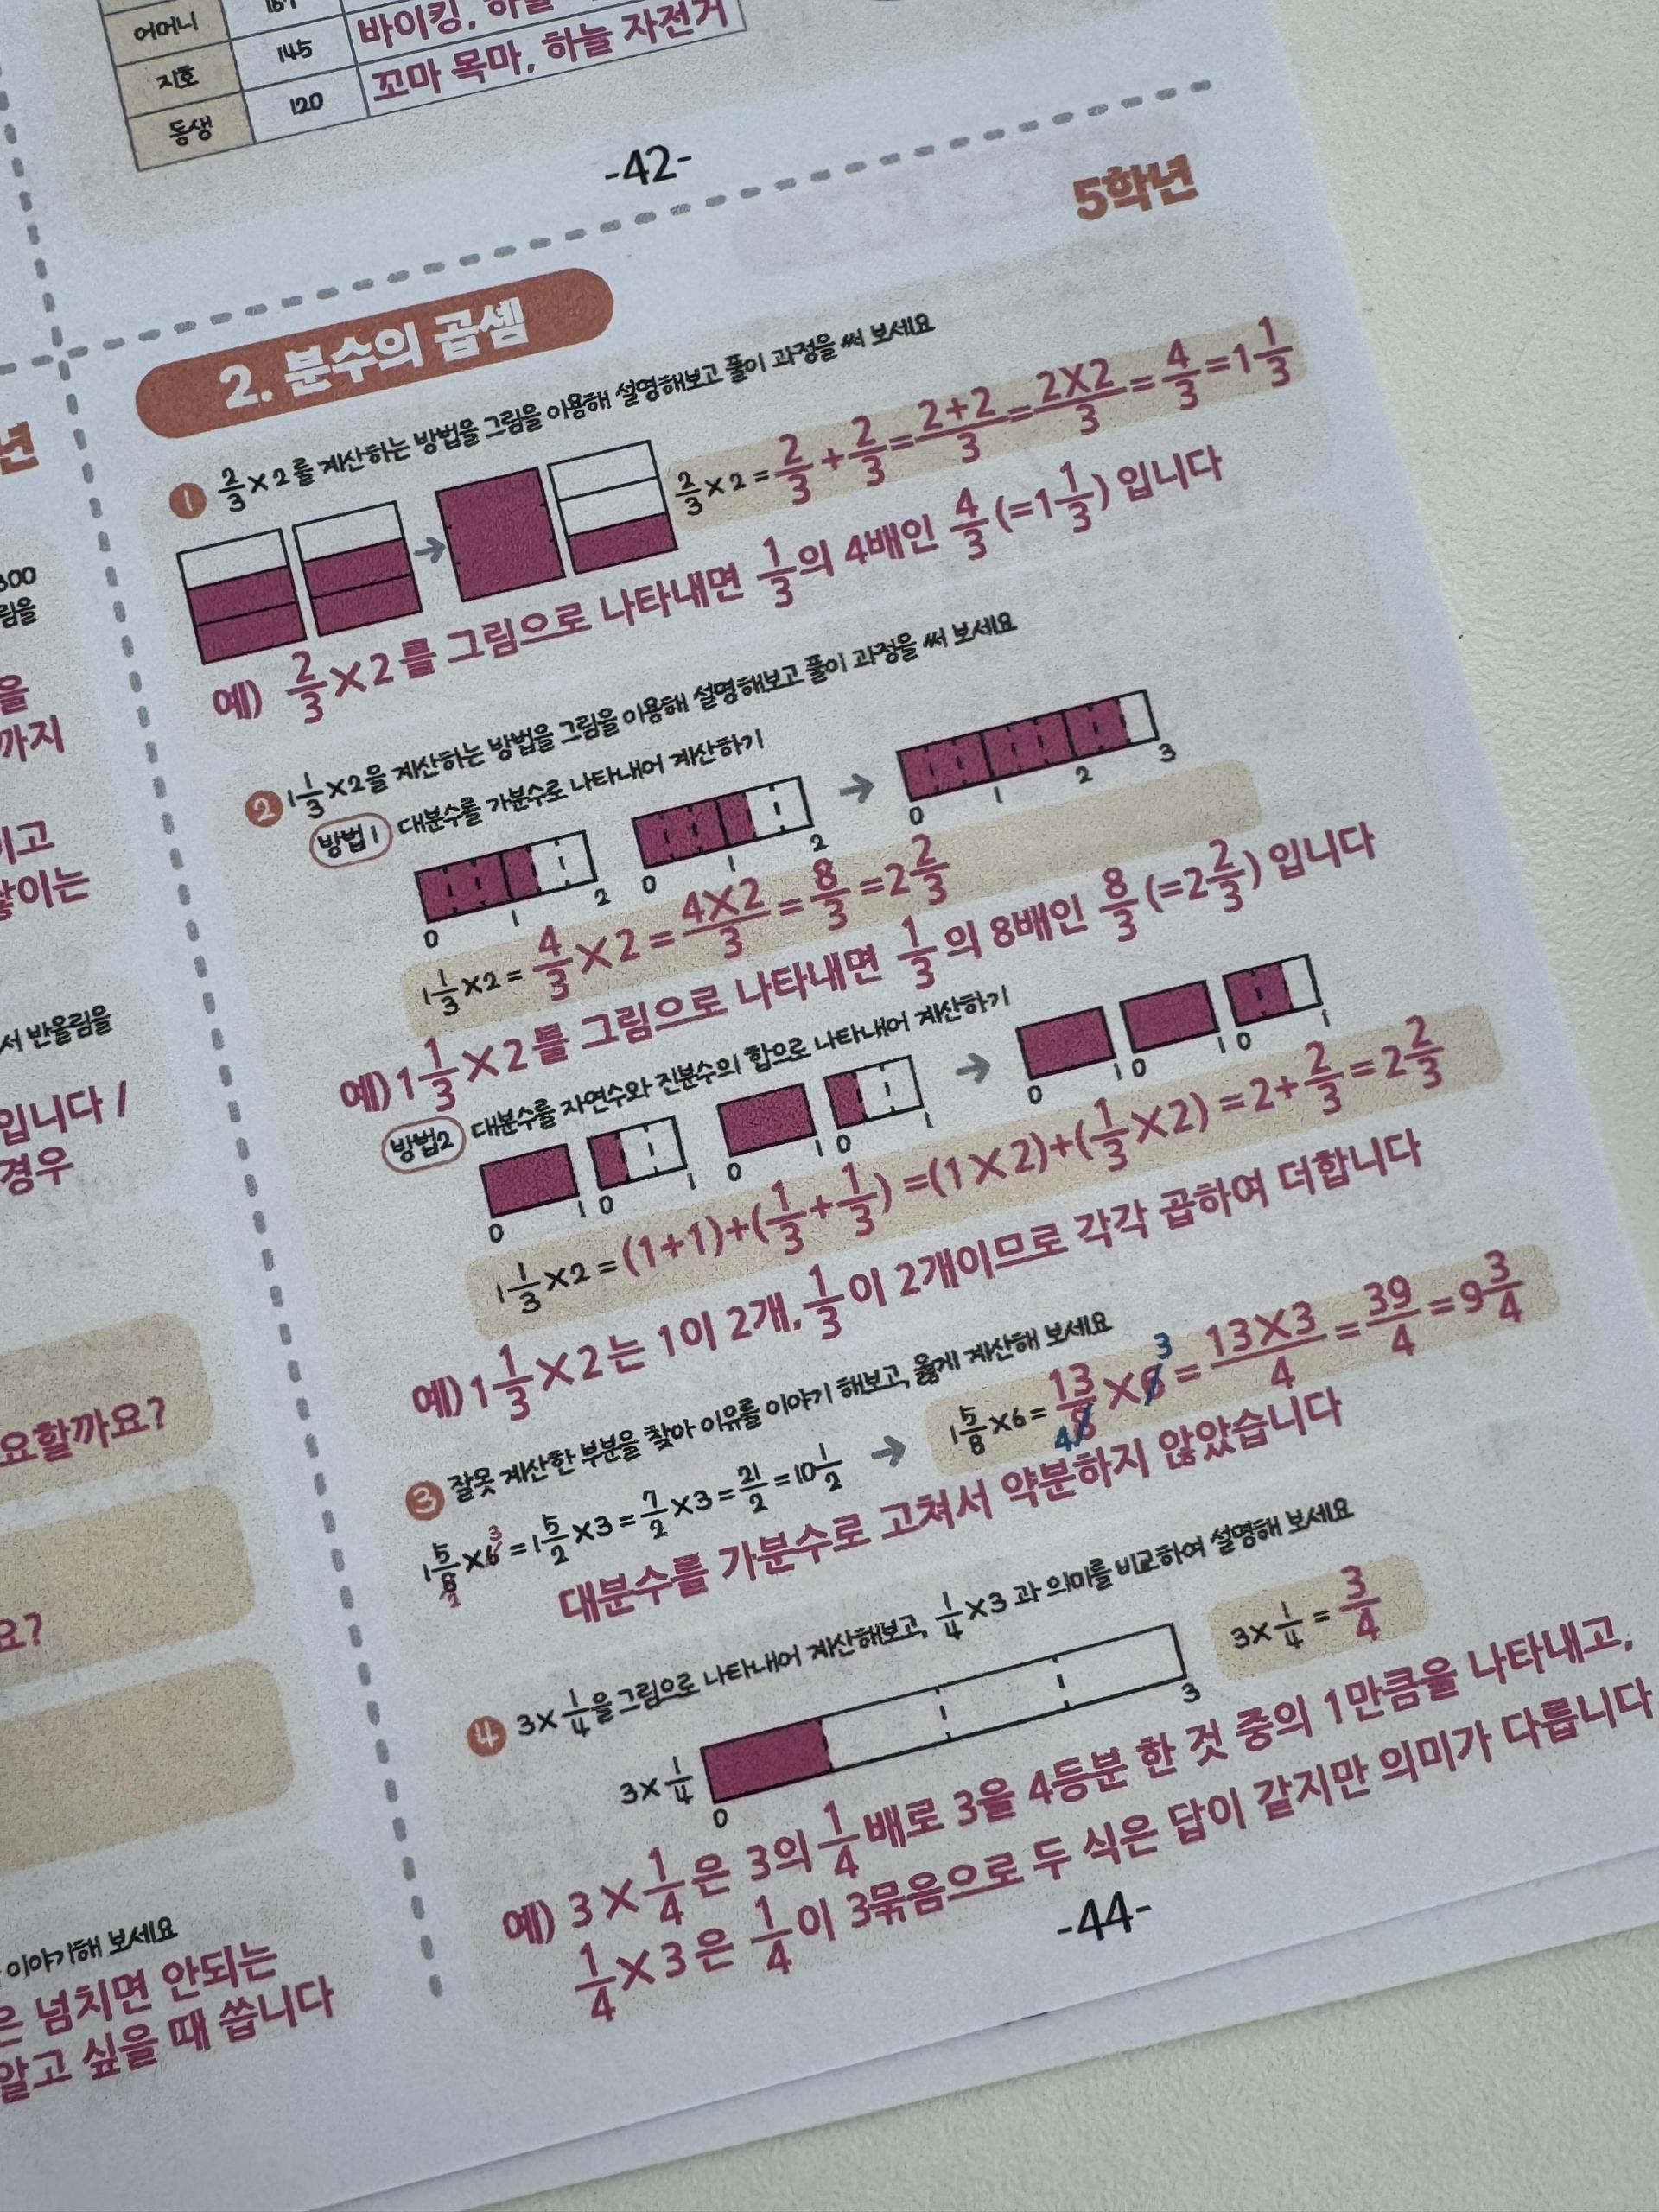 어머니
바이킹, 하늘
지호 145 꼬마 목마, 하늘 자전거
동생 120
-42-
5학년
2. 분수의 곱셈
1 2/3×2를 계산하는 방법을 그림을 이용해 설명해보고 풀이 과정을 써 보세요
2/3×2=2/3+2/3=2+2/3=2×2/3=4/3=1 1/3
예) 2/3×2를 그림으로 나타내면 1/3의 4배인 4/3(=1 1/3) 입니다
2 1 1/3×2을 계산하는 방법을 그림을 이용해 설명해보고 풀이 과정을 써 보세요
방법1 대분수를 가분수로 나타내어 계산하기
0 1 2 0 1 2 → 0 1 2 3
1 1/3×2=4/3×2=4×2/3=8/3=2 2/3
예) 1 1/3×2를 그림으로 나타내면 1/3의 8배인 8/3(=2 2/3) 입니다
방법2 대분수를 자연수와 진분수의 합으로 나타내어 계산하기
0 1 0 1 0 1 0 1 → 0 1 0 1 0 1
1 1/3×2=(1+1)+(1/3+1/3)=(1×2)+(1/3×2)=2+2/3=2 2/3
예) 1 1/3×2는 1이 2개, 1/3이 2개이므로 각각 곱하여 더합니다
3 잘못 계산한 부분을 찾아 이유를 이야기 해보고, 옳게 계산해 보세요
1 5/8×6=1 5/2×3=7/2×3=21/2=10 1/2 → 1 5/8×6=13/8×6=13×3/4=39/4=9 3/4
대분수를 가분수로 고쳐서 약분하지 않았습니다
4 3×1/4을 그림으로 나타내어 계산해보고, 1/4×3과 의미를 비교하여 설명해 보세요
3×1/4 0 3 3×1/4=3/4
예) 3×1/4은 3의 1/4배로 3을 4등분 한 것 중의 1만큼을 나타내고,
1/4×3은 1/4이 3묶음으로 두 식은 답이 같지만 의미가 다릅니다
-44-
년
을
까지
이고
서 반올림을
입니다 /
경우
요할까요?
요?
이야기해 보세요
은 넘치면 안되는
알고 싶을 때 씁니다